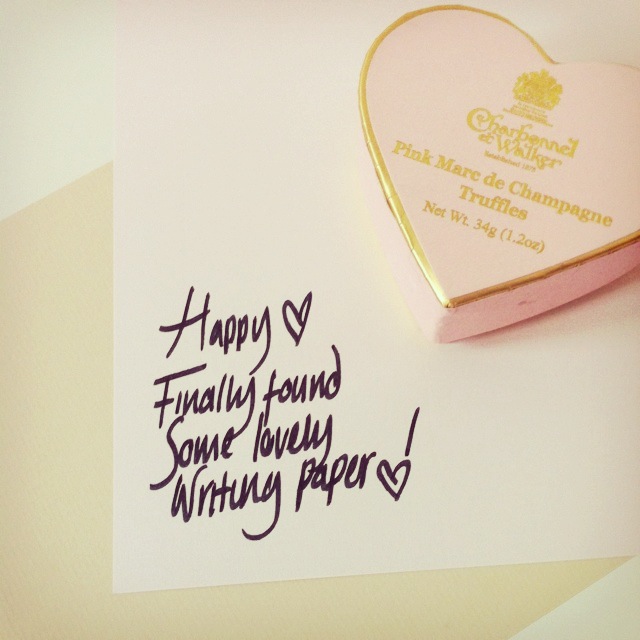 Charbonnel
et Walker
Established 1875
Pink Marc de Champagne
Truffles
Net Wt. 34g (1.2oz)
Happy ♡
Finally found
Some lovely
Writing paper ♡!